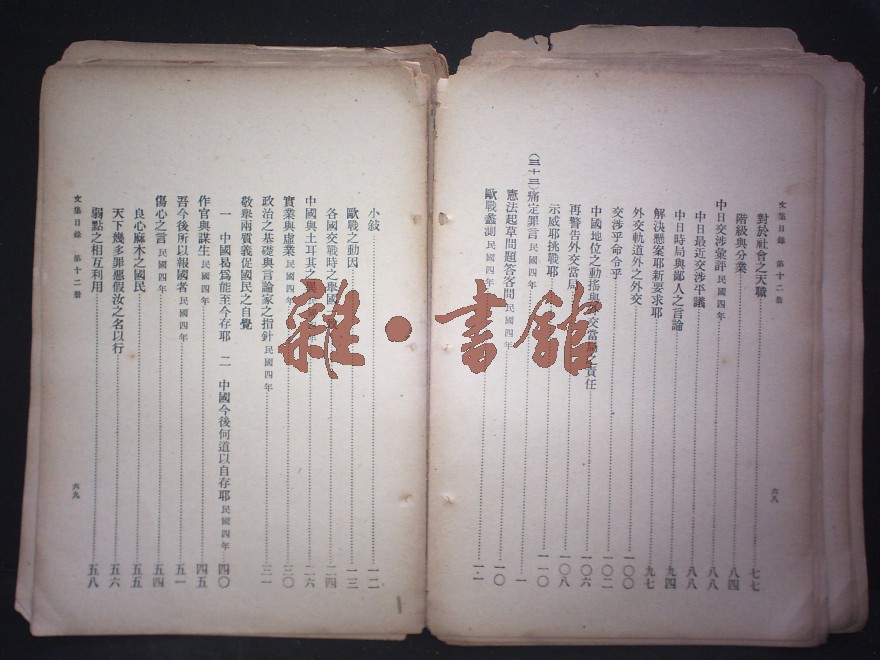 文集目錄 第十二册
對於社會之天職 七七
階級與分業 八四
中日交涉彙評 民國四年 八八
中日最近交涉平議 八八
中日時局與鄙人之言論 九四
解決懸案耶新要求耶 九七
外交軌道外之外交 一〇〇
交涉乎命令乎 一〇二
中國地位之動搖與外交當局之責任 一〇六
再警告外交當局 一〇八
示威耶挑戰耶 一一〇
(三十三)痛定罪言 民國四年 一
憲法起草問題答客問 民國四年 一〇
歐戰蠡測 民國四年
六八
小敍 一二
歐戰之動因 一三
各國交戰時之舉國 二四
中國與土耳其之異 二六
實業與虛業 民國四年 三〇
政治之基礎與言論家之指針 民國四年 三一
敬舉兩質義促國民之自覺
一 中國曷爲能至今存耶 二 中國今後何道以自存耶 民國四年 四〇
作官與謀生 民國四年 四五
吾今後所以報國者 民國四年 五一
傷心之言 民國四年 五四
良心麻木之國民 五五
天下幾多罪惡假汝之名以行 五六
弱點之相互利用 五八
文集目錄 第十二册
六九
雜·書館